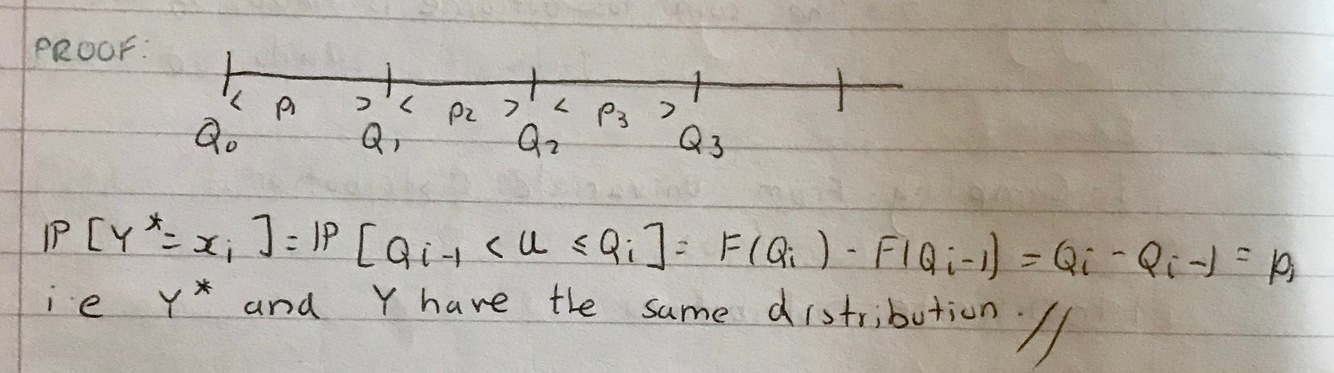 PROOF:
< p₁ > < p₂ > < p₃ >
Q₀ Q₁ Q₂ Q₃
ℙ[Y*=xᵢ]=ℙ[Qᵢ₋₁<U≤Qᵢ]=F(Qᵢ)-F(Qᵢ₋₁)=Qᵢ-Qᵢ₋₁=pᵢ
i.e Y* and Y have the same distribution.//